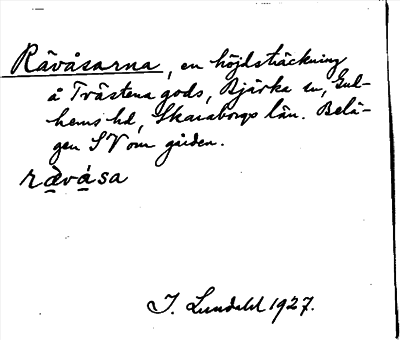 Rävåsarna, en höjdsträckning
å Trästena gods, Bjärka sn, Gud-
hems hd, Skaraborgs län. Belä-
gen SV om gården.
rävåsa
J. Lundahl 1927.